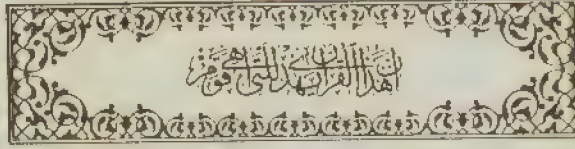 ان هذا القرآن يهدي للتي هي أقوم